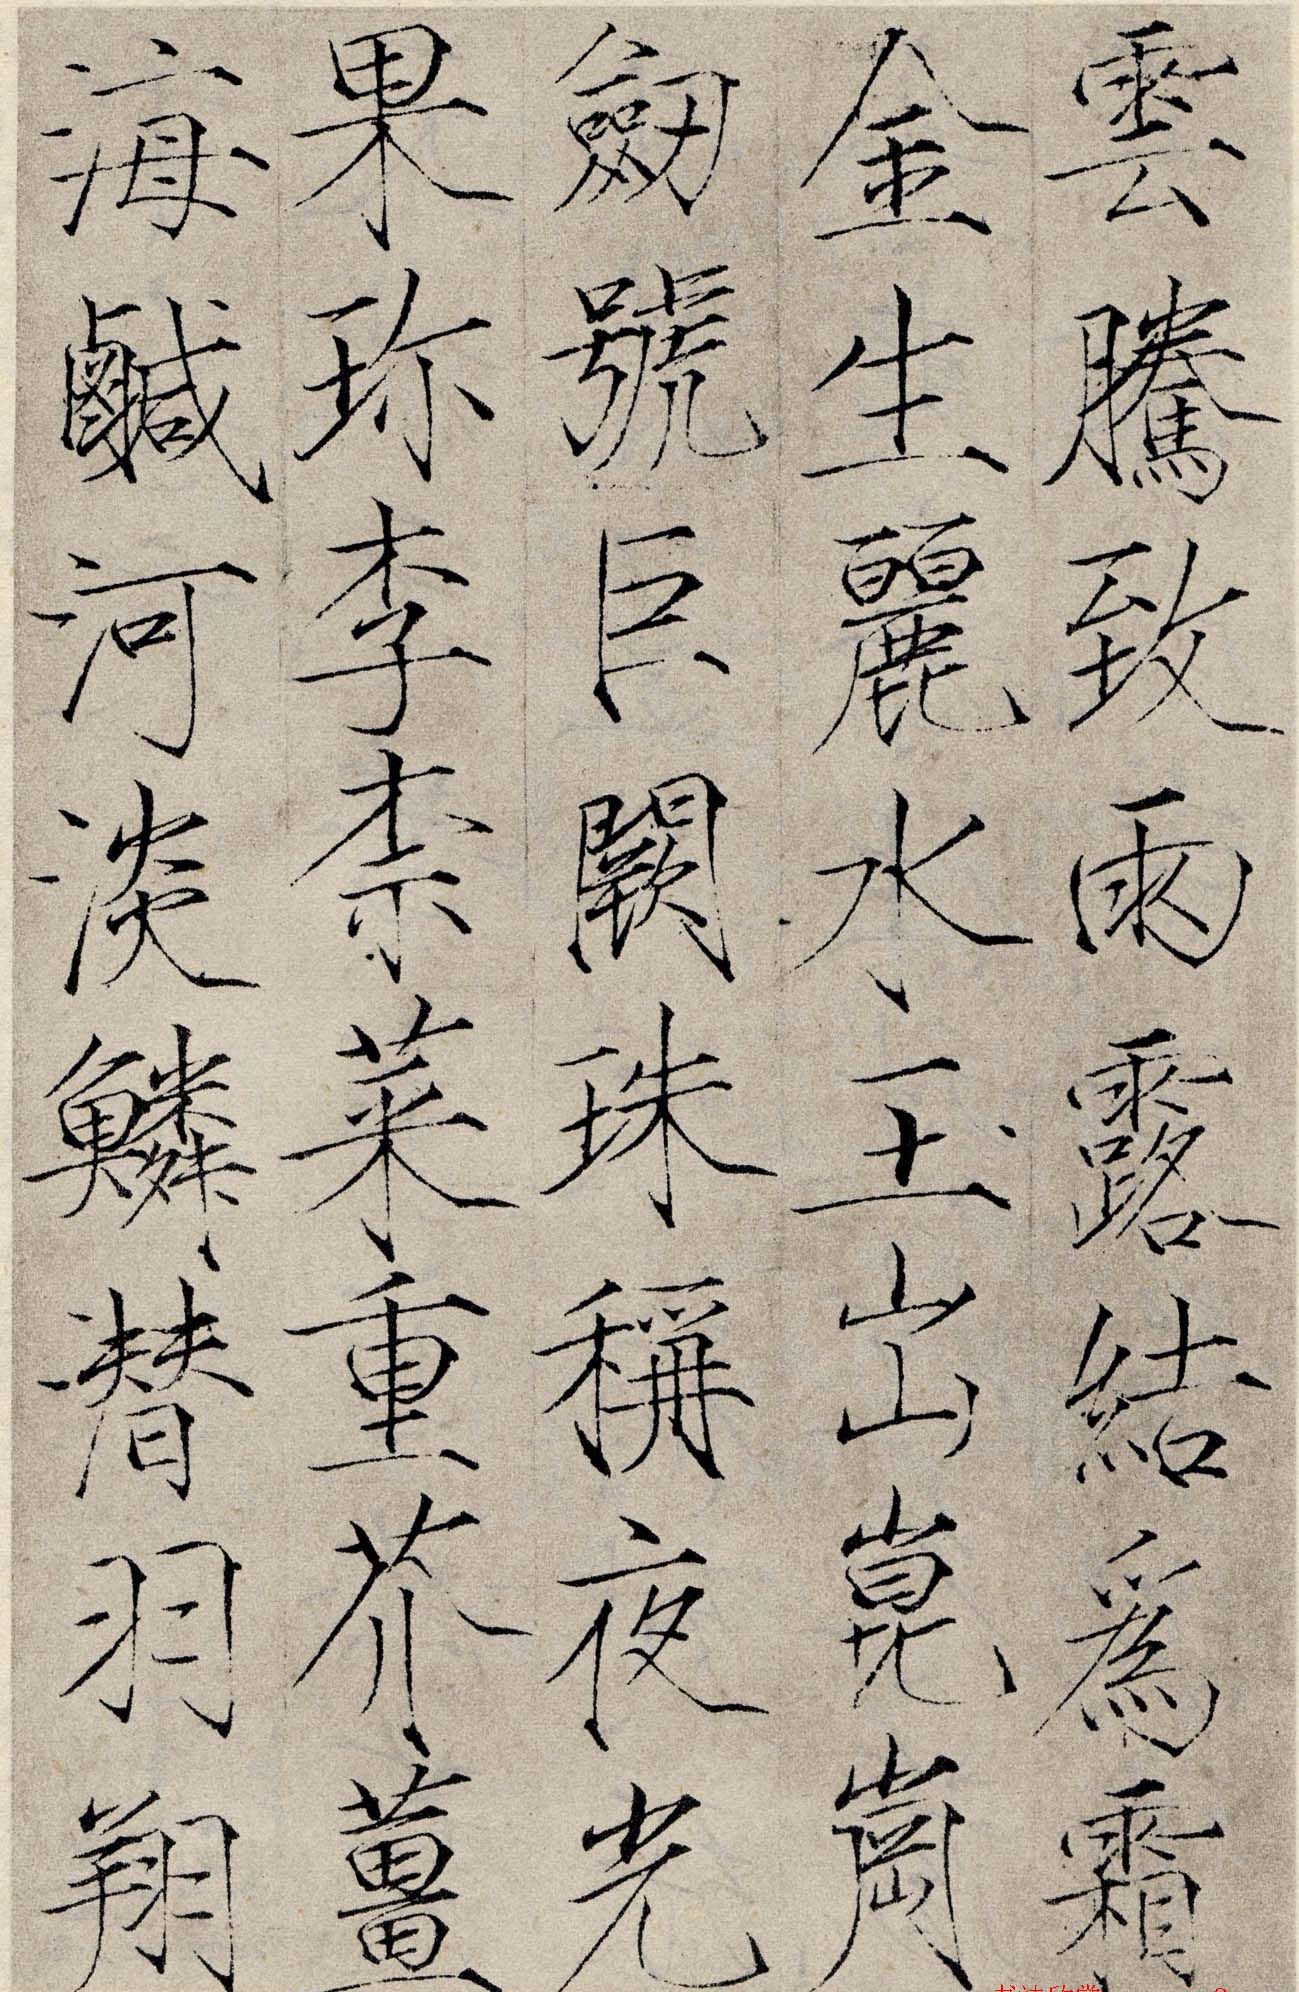 雲騰致雨露結為霜
金生麗水玉出崑崗
劒號巨闕珠稱夜光
果珎李柰菜重芥薑
海鹹河淡鱗潜羽翔